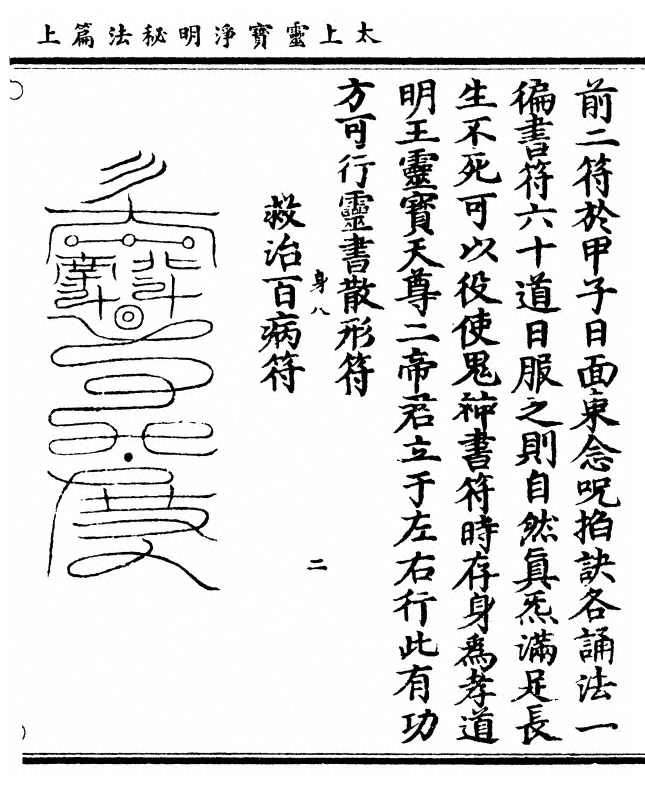 太上靈寶淨明秘法篇上
前二符於甲子日面東念呪掐訣各誦法一
徧書符六十道日服之則自然真炁滿足長
生不死可以役使鬼神書符時存身爲孝道
明王靈寶天尊二帝君立于左右行此有功
方可行靈書散形符
身八
二
救治百病符